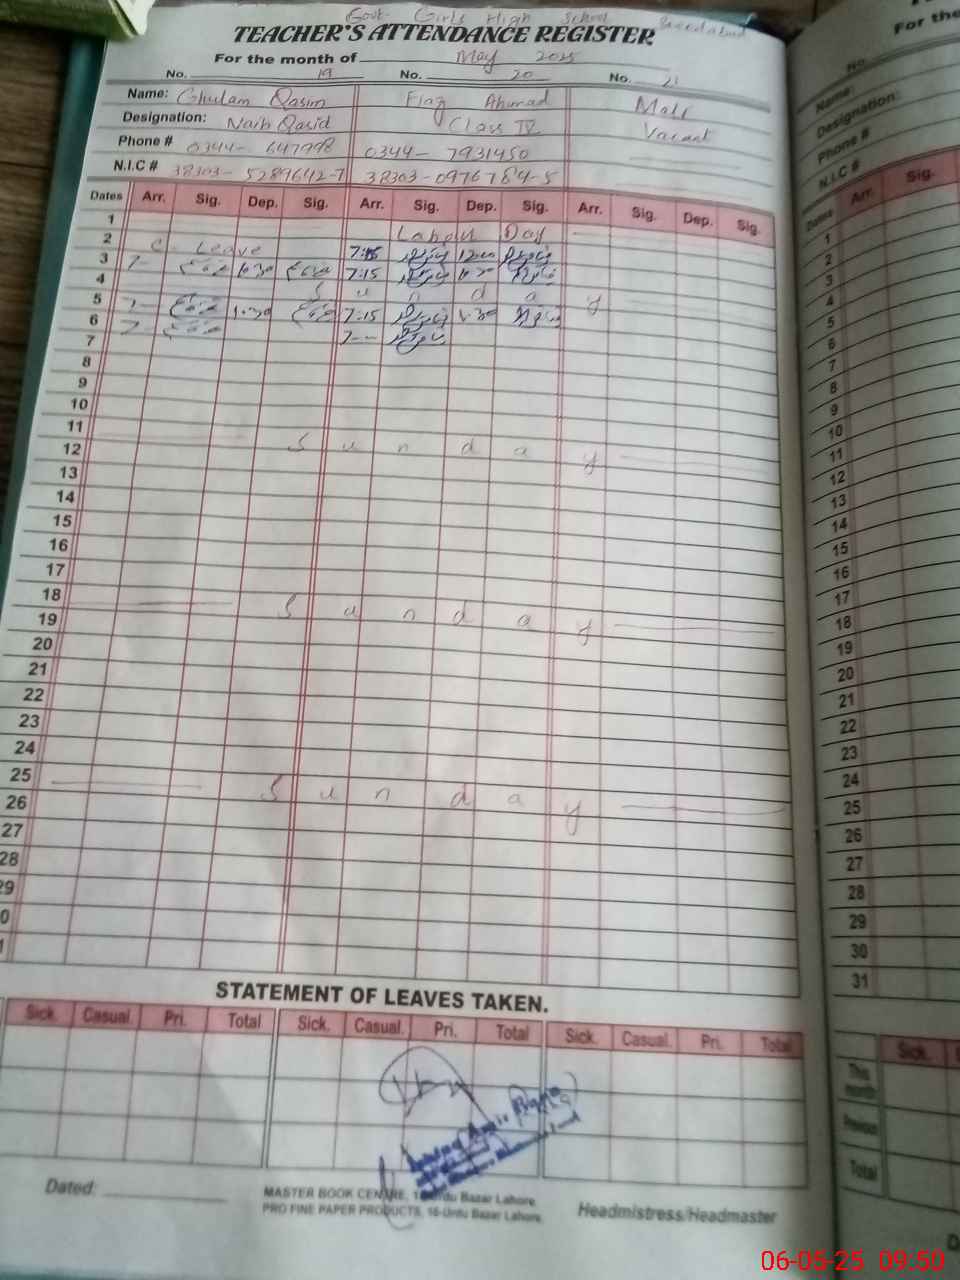 Govt. Girls High School
TEACHER'S ATTENDANCE REGISTER
For the month of May 2025
No. 19 No. 20 No. 21
Name: Ghulam Qasim Fiaz Ahmad Mali
Designation: Naib Qasid Class IV Vacant
Phone # 0344-647998 0344-7931450
N.I.C # 38303-5289642-7 38303-0976784-5
Dates Arr. Sig. Dep. Sig. Arr. Sig. Dep. Sig. Arr. Sig. Dep. Sig.
1 Labour Day
2 C-Leave 7:15 12:00
3 7- 10:30 7:15 10:30
4 Sunday
5 7- 1:30 7:15 1:30
6 7- 7-
7
8
9
10
11 Sunday
12
13
14
15
16
17
18 Sunday
19
20
21
22
23
24
25 Sunday
26
27
28
29
0
1
STATEMENT OF LEAVES TAKEN.
Sick. Casual. Pri. Total Sick. Casual. Pri. Total Sick. Casual. Pri. Total
Dated:
MASTER BOOK CENTRE, 16-Urdu Bazar Lahore.
PRO FINE PAPER PRODUCTS, 16-Urdu Bazar Lahore.
Headmistress/Headmaster
For the
No.
Name:
Designation:
Phone #
N.I.C #
Dates Arr. Sig.
1
2
3
4
5
6
7
8
9
10
11
12
13
14
15
16
17
18
19
20
21
22
23
24
25
26
27
28
29
30
31
Sick.
This month
Previous
Total
06-05-25 09:50